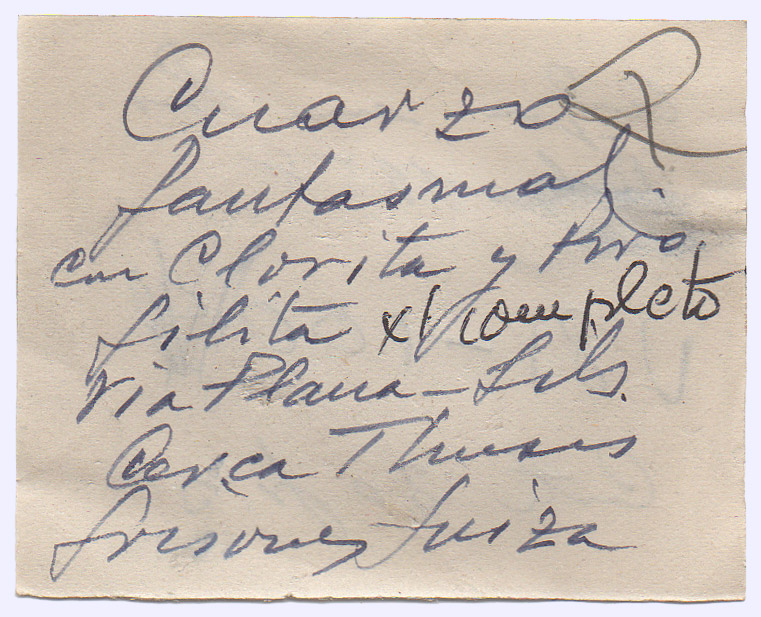 Cuarzo
fantasmal.
con Clorita y Piro
filita xl completo
Via Plana - Sils.
Cerca Thusis
Grisones Suiza